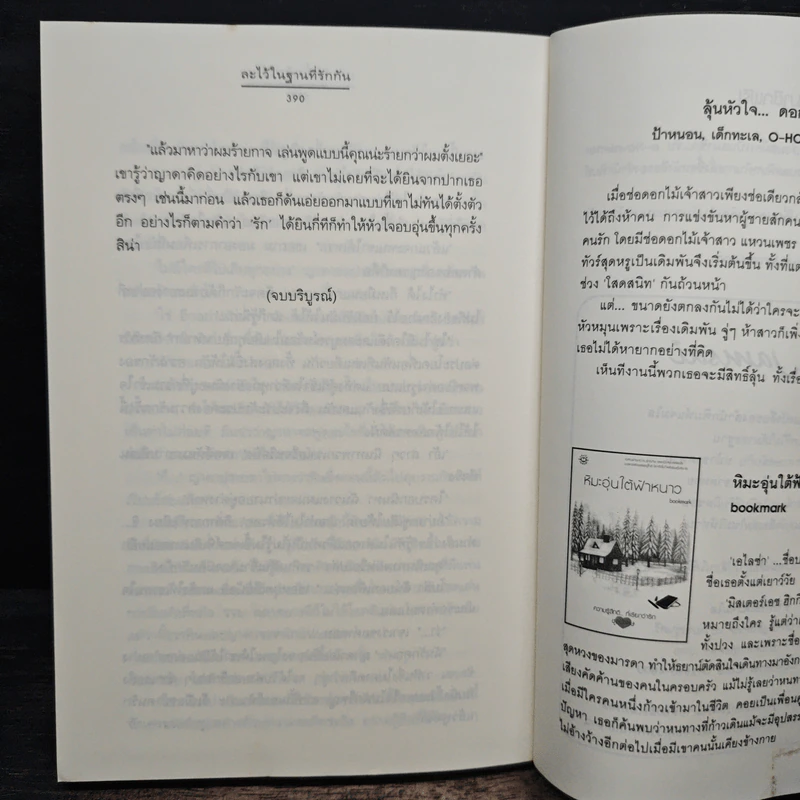 ละไว้ในฐานที่รักกัน
390
"แล้วมาหาว่าผมร้ายกาจ เล่นพูดแบบนี้คุณน่ะร้ายกว่าผมตั้งเยอะ"
เขารู้ว่าญาดาคิดอย่างไรกับเขา แต่เขาไม่เคยที่จะได้ยินจากปากเธอ
ตรงๆ เช่นนี้มาก่อน แล้วเธอก็ดันเอ่ยออกมาแบบที่เขาไม่ทันได้ตั้งตัว
อีก อย่างไรก็ตามคำว่า 'รัก' ได้ยินกี่ทีก็ทำให้หัวใจอบอุ่นขึ้นทุกครั้ง
สิน่า
(จบบริบูรณ์)
ลุ้นหัวใจ...
ป้าหนอน, เด็กทะเล,
เมื่อช่อดอกไม้เจ้าสาวเพียงช่อเดียว
ไว้ได้ถึงห้าคน การแข่งขันหาผู้ชายสักคน
คนรัก โดยมีช่อดอกไม้เจ้าสาว แหวนเพชร
ทัวร์สุดหรูเป็นเดิมพันจึงเริ่มต้นขึ้น ทั้งที่
ช่วง 'โสดสนิท' กันถ้วนหน้า
แต่... ขนาดยังตกลงกันไม่ได้ว่าใครจะ
หัวหมุนเพราะเรื่องเดิมพัน จู่ๆ ห้าสาวก็
เธอไม่ได้หายากอย่างที่คิด
เห็นทีงานนี้พวกเธอจะมีสิทธิ์ลุ้น
หิมะอุ่นใต้ฟ้าหนาว
bookmark
ความรู้สึกดี... ที่เรียกว่ารัก
หิมะอุ่นใต้
bookmark
'เอไลซ่า'
ชื่อเธอตั้งแต่เยาว์วัย
'มิสเตอร์เอช ฮิกกิ
หมายถึงใคร รู้แต่ว่า
ทั้งปวง และเพราะชื่อ
สุดหวงของมารดา ทำให้ธยาน์ตัดสินใจเดินทางมา
เสียงคัดค้านของคนในครอบครัว แม้ไม่รู้เลยว่าหนทาง
เมื่อมีใครคนหนึ่งก้าวเข้ามาในชีวิต คอยเป็นเพื่อน
ปัญหา เธอก็ค้นพบว่าหนทางที่ก้าวเดินแม้จะมี
ไม่อ้างว้างอีกต่อไปเมื่อมีเขาคนนั้นเคียงข้างกาย